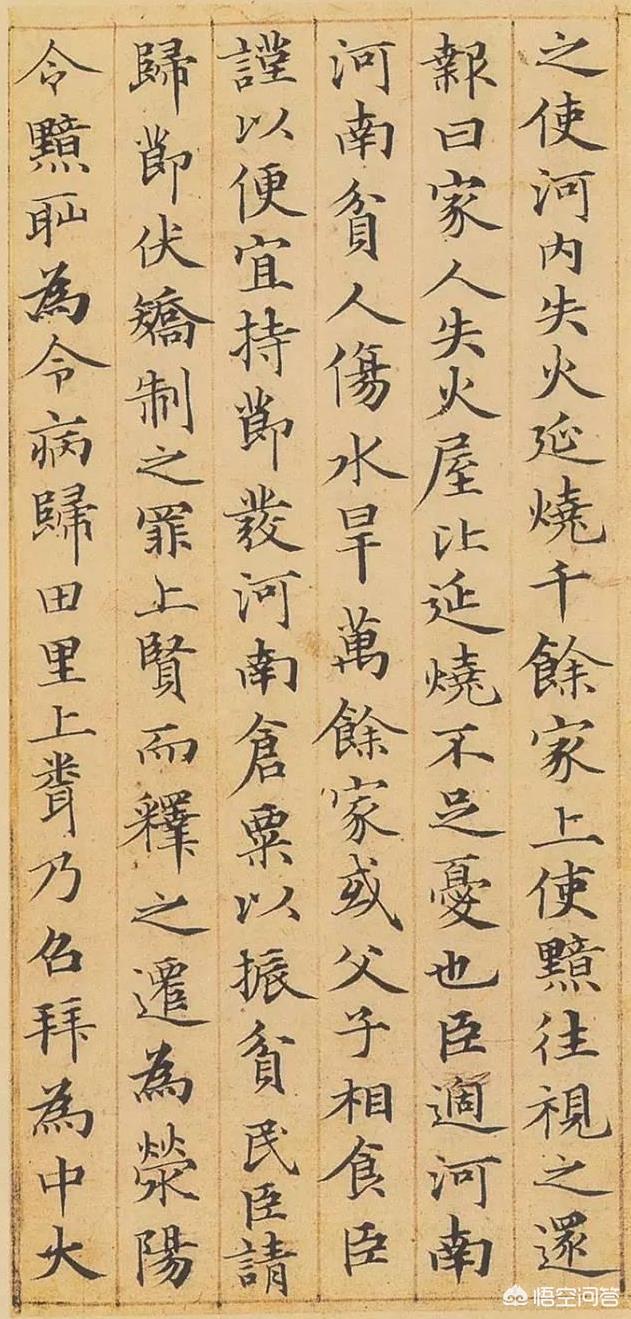 之使河内失火延燒千餘家上使黯往視之還
報曰家人失火屋比延燒不足憂也臣過河南
河南貧人傷水旱萬餘家或父子相食臣
謹以便宜持節發河南倉粟以振貧民臣請
歸節伏矯制之罪上賢而釋之遷為滎陽
令黯恥為令病歸田里上聞乃召拜為中大
悟空问答